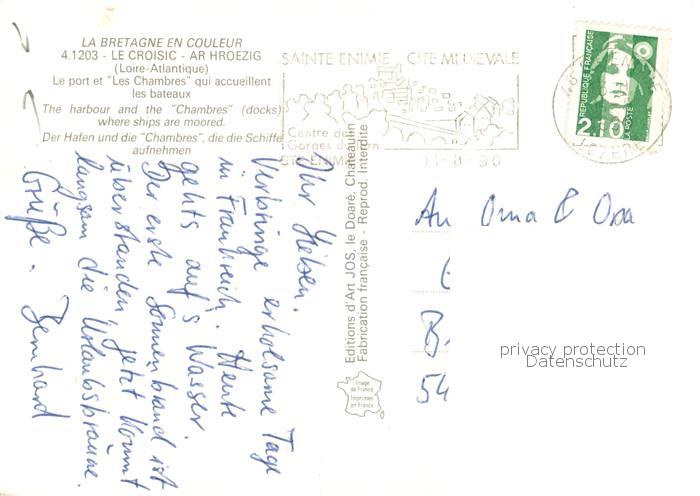 LA BRETAGNE EN COULEUR
4.1203 - LE CROISIC - AR HROEZIG
(Loire-Atlantique)
Le port et "Les Chambres" qui accueillent
les bateaux
The harbour and the "Chambres" (docks)
where ships are moored.
Der Hafen und die "Chambres", die die Schiffe
aufnehmen
SAINTE ENIMIE CITE MEDIEVALE
Centre des
Gorges du Tarn
STE ENIMIE
11-8-90
REPUBLIQUE FRANÇAISE
LA POSTE
2,10
LOZERE
Ihr Lieben.
Verbringe erholsame Tage
in Frankreich. Heute
gehts auf's Wasser.
Der erste Sonnenbrand ist
überstanden, jetzt kommt
langsam die Urlaubsbräune.
Grüße. Bernhard
Editions d'Art JOS, le Doaré, Chateaulin
Fabrication française - Reprod. Interdite
Image
de France
Imprimée
en France
An Oma & Opa
B.
54
privacy protection
Datenschutz